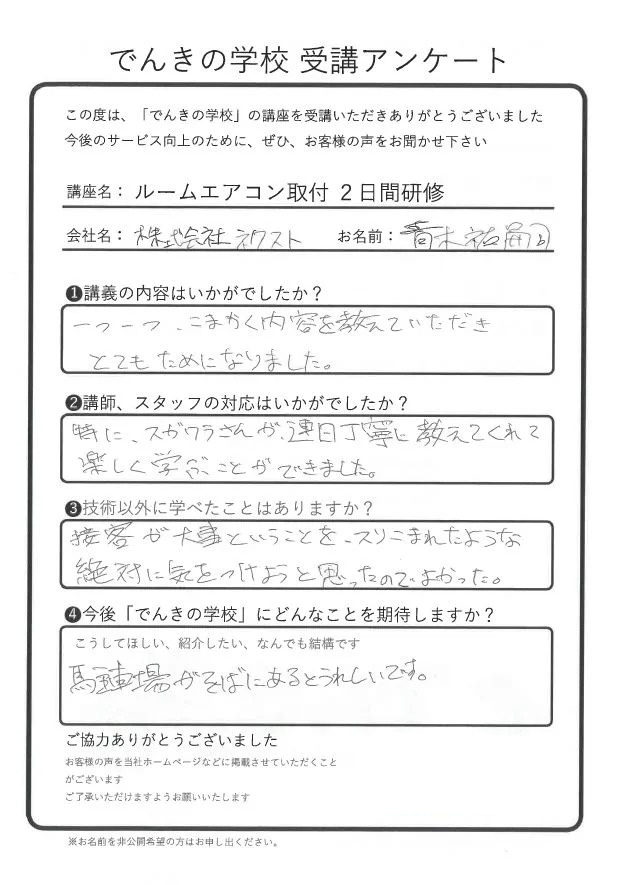 でんきの学校 受講アンケート
この度は、「でんきの学校」の講座を受講いただきありがとうございました
今後のサービス向上のために、ぜひ、お客様の声をお聞かせ下さい
講座名： ルームエアコン取付 2日間研修
会社名： 株式会社ネクスト お名前： 青木祐
❶講義の内容はいかがでしたか？
一つ一つ、こまかく内容を教えていただき
とてもためになりました。
❷講師、スタッフの対応はいかがでしたか？
特に、スガワラさんが、連日丁寧に教えてくれて
楽しく学ぶことができました。
❸技術以外に学べたことはありますか？
接客が大事ということを、スリこまれたような
絶対に気をつけようと思ったのでよかった。
❹今後「でんきの学校」にどんなことを期待しますか？
こうしてほしい、紹介したい、なんでも結構です
場がそばにあるとうれしいです。
ご協力ありがとうございました
お客様の声を当社ホームページなどに掲載させていただくこと
がございます
ご了承いただけますようお願いいたします
※お名前を非公開希望の方はお申し出ください。